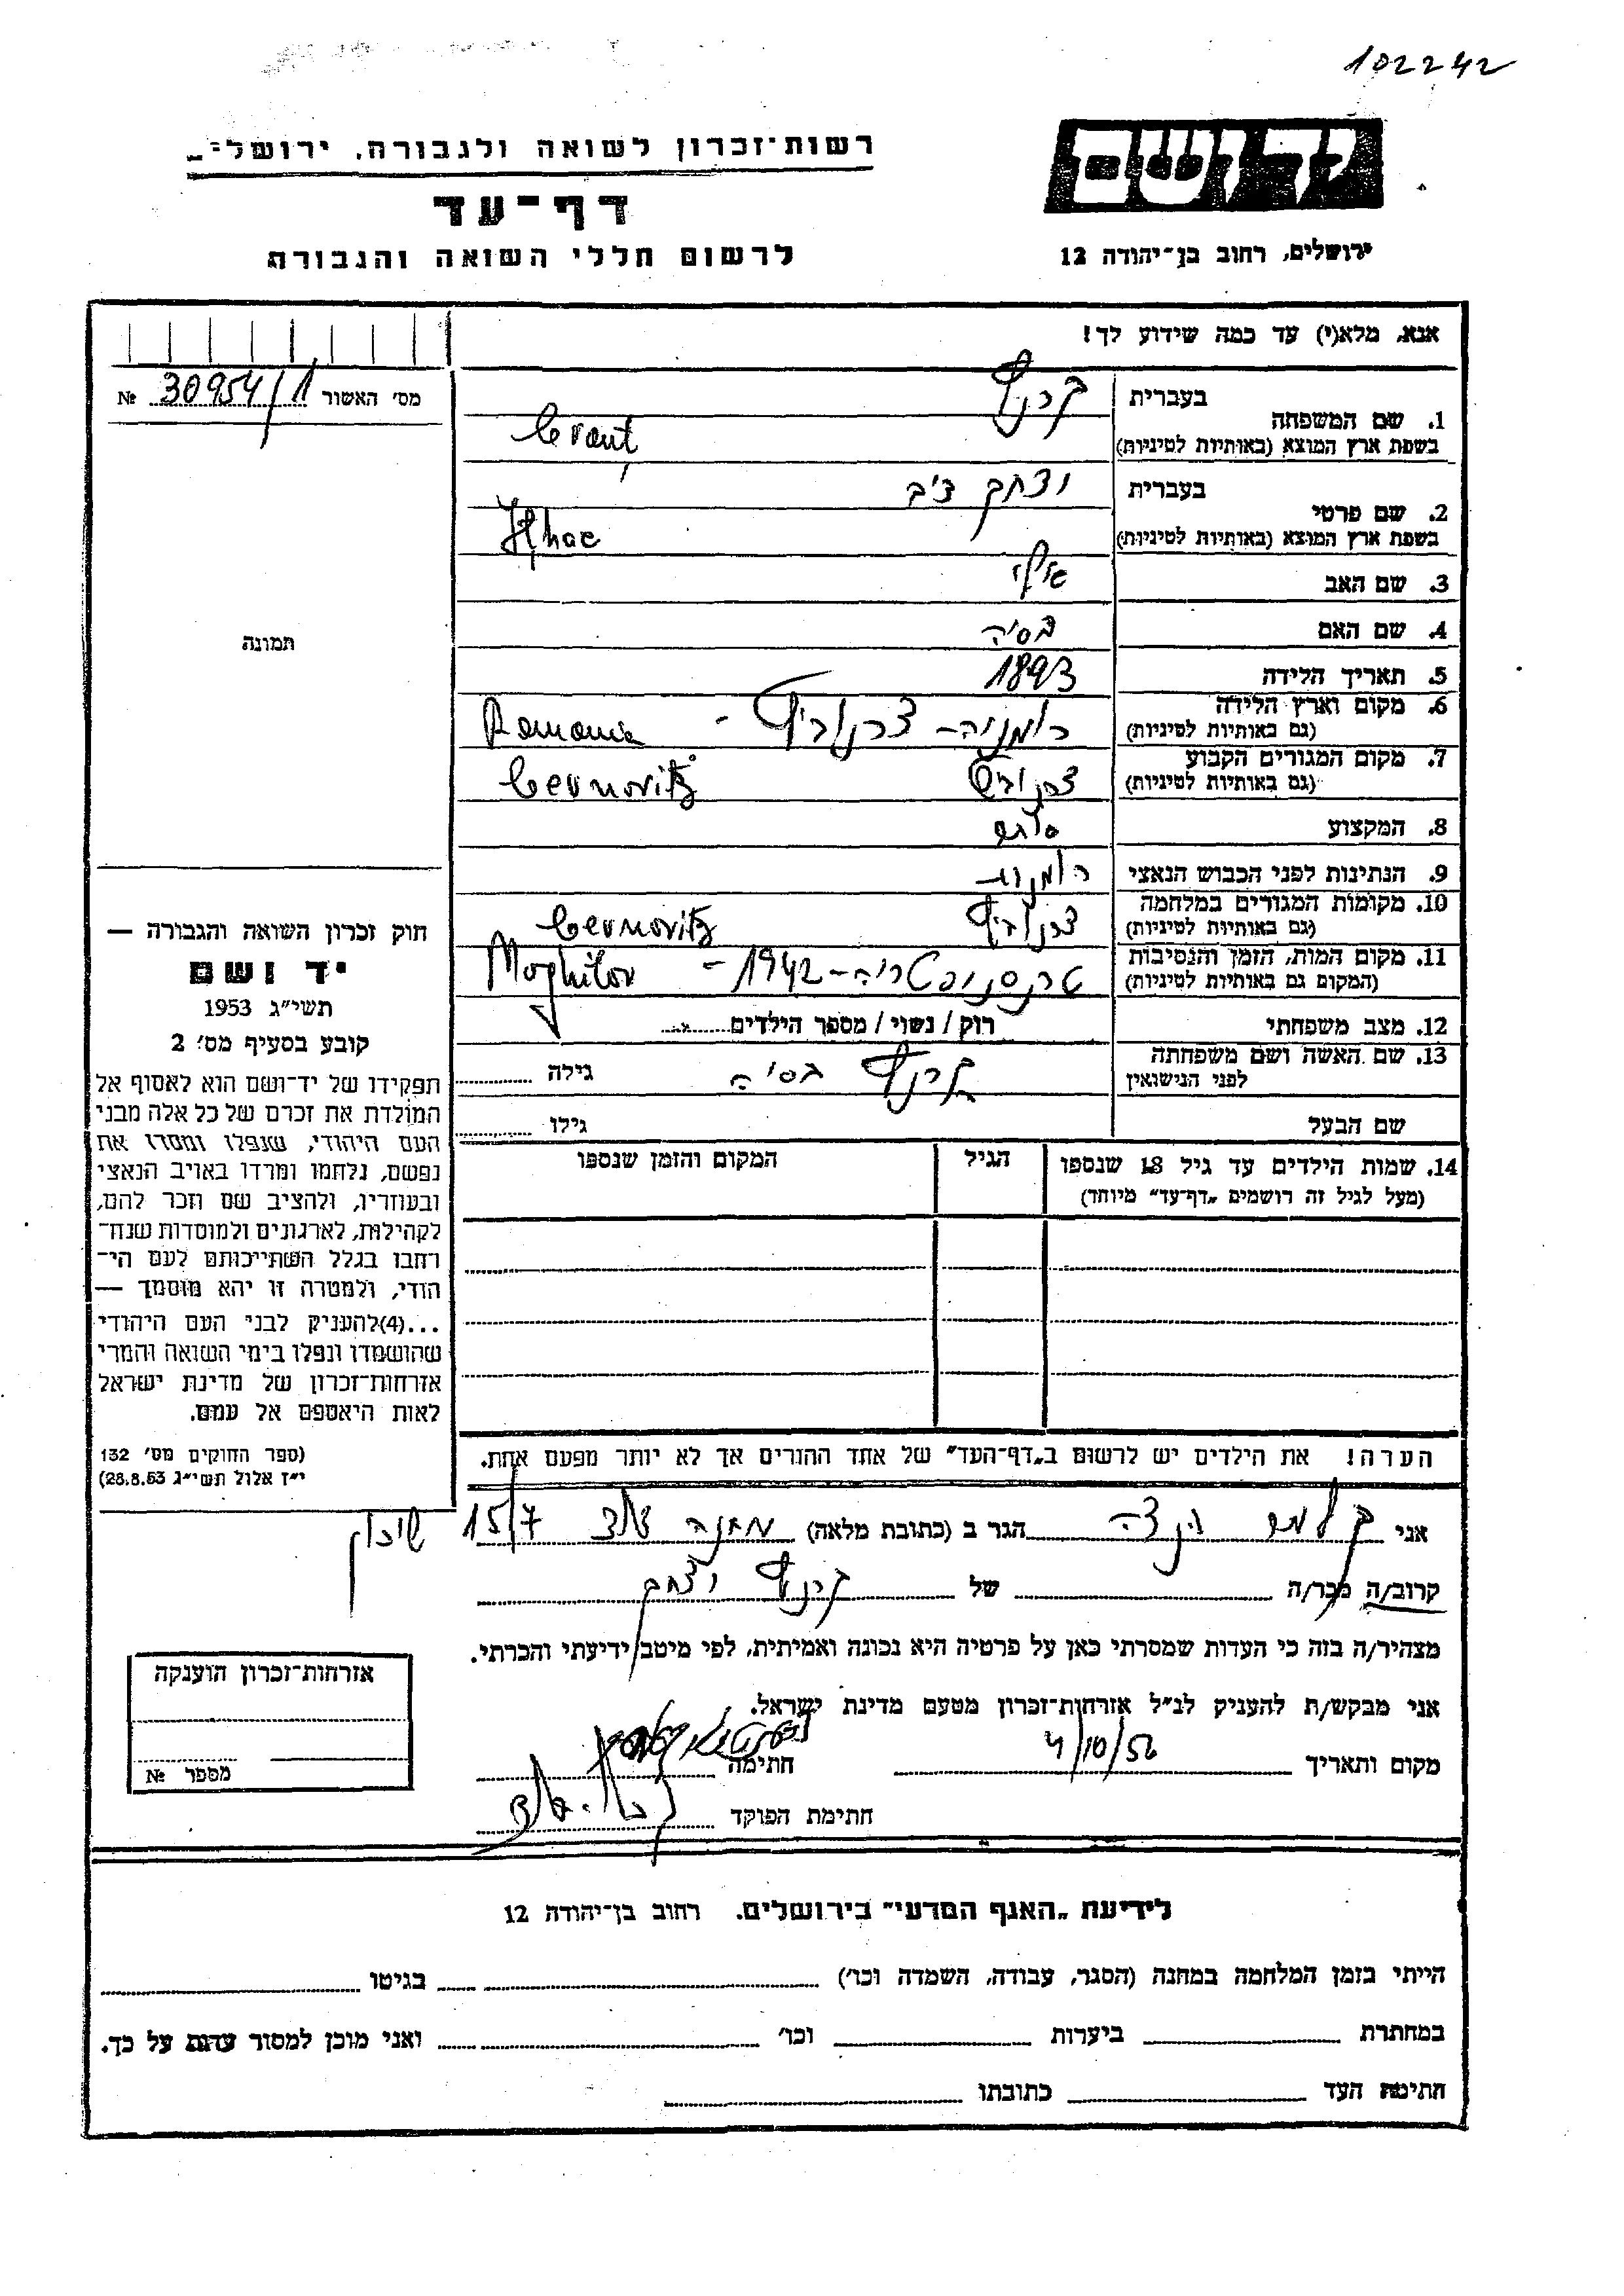 102242
ידושם
ירושלים, רחוב בן־יהודה 12
רשות־זכרון לשואה ולגבורה, ירושלי
דף־עד
לרשום חללי השואה והגבורה
אנא, מלא(י) עד כמה שידוע לך!
מס׳ האשור 30954/1 №
תמונה
1. שם המשפחה
בעברית
בשפת ארץ המוצא (באותיות לטיניות) Cranţ
2. שם פרטי
בעברית יצחק
בשפת ארץ המוצא (באותיות לטיניות) Iţhac
3. שם האב
4. שם האם בסיה
5. תאריך הלידה 1893
6. מקום וארץ הלידה רומניה - צרנוביץ - Romania
(גם באותיות לטיניות)
7. מקום המגורים הקבוע Cernovitz
(גם באותיות לטיניות)
8. המקצוע סוחר
9. הנתינות לפני הכבוש הנאצי רומנית
10. מקומות המגורים במלחמה צרנוביץ Cernovitz
(גם באותיות לטיניות)
11. מקום המות, הזמן והנסיבות טרנסניסטריה - 1942 - Moghilov
(המקום גם באותיות לטיניות)
12. מצב משפחתי רוק / נשוי / מספר הילדים
13. שם האשה ושם משפחתה בסיה גילה
לפני הנישואין
שם הבעל גילו
14. שמות הילדים עד גיל 18 שנספו הגיל המקום והזמן שנספו
(מעל לגיל זה רושמים „דף־עד״ מיוחד)
הערה! את הילדים יש לרשום ב„דף־העד״ של אחד ההורים אך לא יותר מפעם אחת.
חוק זכרון השואה והגבורה —
יד ושם
תשי״ג 1953
קובע בסעיף מס׳ 2
תפקידו של יד־ושם הוא לאסוף אל
המולדת את זכרם של כל אלה מבני
העם היהודי, שנפלו ומסרו את
נפשם, נלחמו ומרדו באויב הנאצי
ובעוזריו, ולהציב שם וזכר להם,
לקהילות, לארגונים ולמוסדות שנח־
רחבו בגלל השתייכותם לעם הי־
הודי, ולמטרה זו יהא מוסמך —
...(4)להעניק לבני העם היהודי
שהושמדו ונפלו בימי השואה והמרי
אזרחות־זכרון של מדינת ישראל
לאות היאספם אל עמם.
(ספר החוקים מס׳ 132
י״ז אלול תשי״ג 28.8.53)
אני הגר ב (כתובת מלאה) 15/7 שיכון
קרוב/ה מכר/ה של יצחק
מצהיר/ה בזה כי העדות שמסרתי כאן על פרטיה היא נכונה ואמיתית, לפי מיטב ידיעתי והכרתי.
אני מבקש/ת להעניק לנ״ל אזרחות־זכרון מטעם מדינת ישראל.
מקום ותאריך 4/10/56 חתימה
חתימת הפוקד
אזרחות־זכרון הוענקה
מספר №
לידיעת „האגף המדעי״ בירושלים. רחוב בן־יהודה 12
הייתי בזמן המלחמה במחנה (הסגר, עבודה, השמדה וכו׳) בגיטו
במחתרת ביערות וכו׳ ואני מוכן למסור עדות על כך.
חתימת העד כתובתו